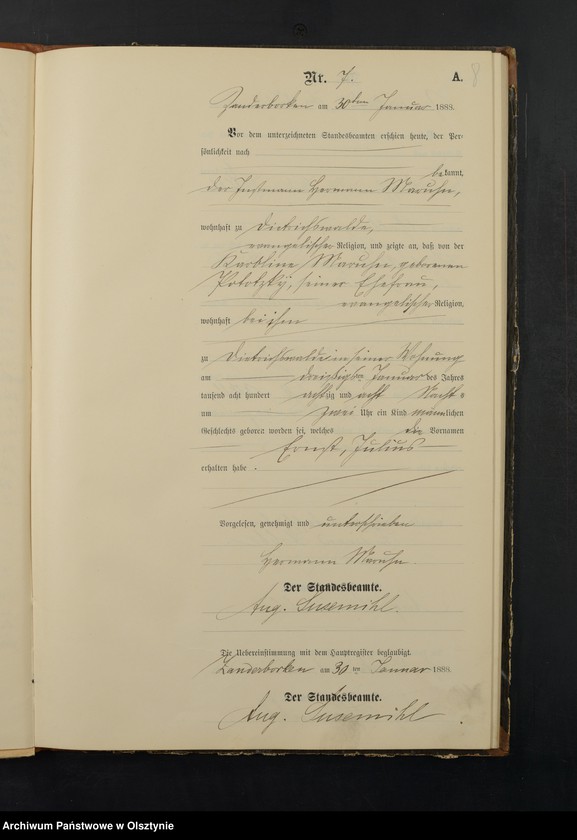 Nr. 7.
A. 8
Zanderborken am 30ten Januar 1888.
Vor dem unterzeichneten Standesbeamten erschien heute, der Per-
sönlichkeit nach
bekannt,
der Instmann Hermann Maruhn,
wohnhaft zu Dietrichswalde,
evangelischer Religion, und zeigte an, daß von der
Karoline Maruhn, geborenen
seiner Ehefrau,
evangelischer Religion,
wohnhaft bei ihm
zu Dietrichswalde in seiner Wohnung
am dreißigsten Januar des Jahres
tausend acht hundert achtzig und acht Nachts
um zwei Uhr ein Kind männlichen
Geschlechts geboren worden sei, welches die Vornamen
Ernst, Julius
erhalten habe.
Vorgelesen, genehmigt und unterschrieben
Hermann Maruhn.
Der Standesbeamte.
Aug. Susemihl.
Die Uebereinstimmung mit dem Hauptregister beglaubigt.
Zanderborken am 30ten Januar 1888.
Der Standesbeamte.
Aug. Susemihl.
Archiwum Państwowe w Olsztynie